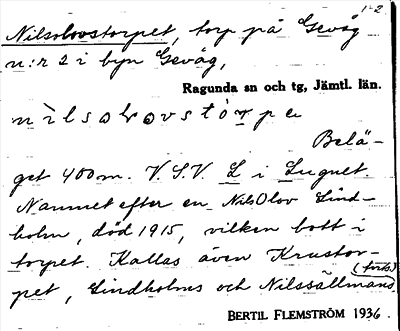 1-2
Nilsolovstorpet, torp på Gevåg
n:r 2 i byn Gevåg,
Ragunda sn och tg, Jämtl. län.
nilsolovstórpe
Belä-
get 400 m. V.S.V. L i Lugnet.
Namnet efter en Nils Olov Lind-
holm, död 1915, vilken bott i
torpet. Kallas även Krustor-
(forts.)
pet, Lindholms och Nilssällmans
BERTIL FLEMSTRÖM 1936.